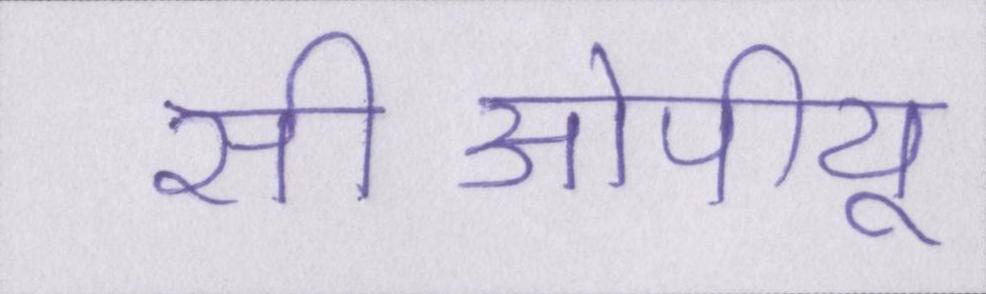 सीओपीयू